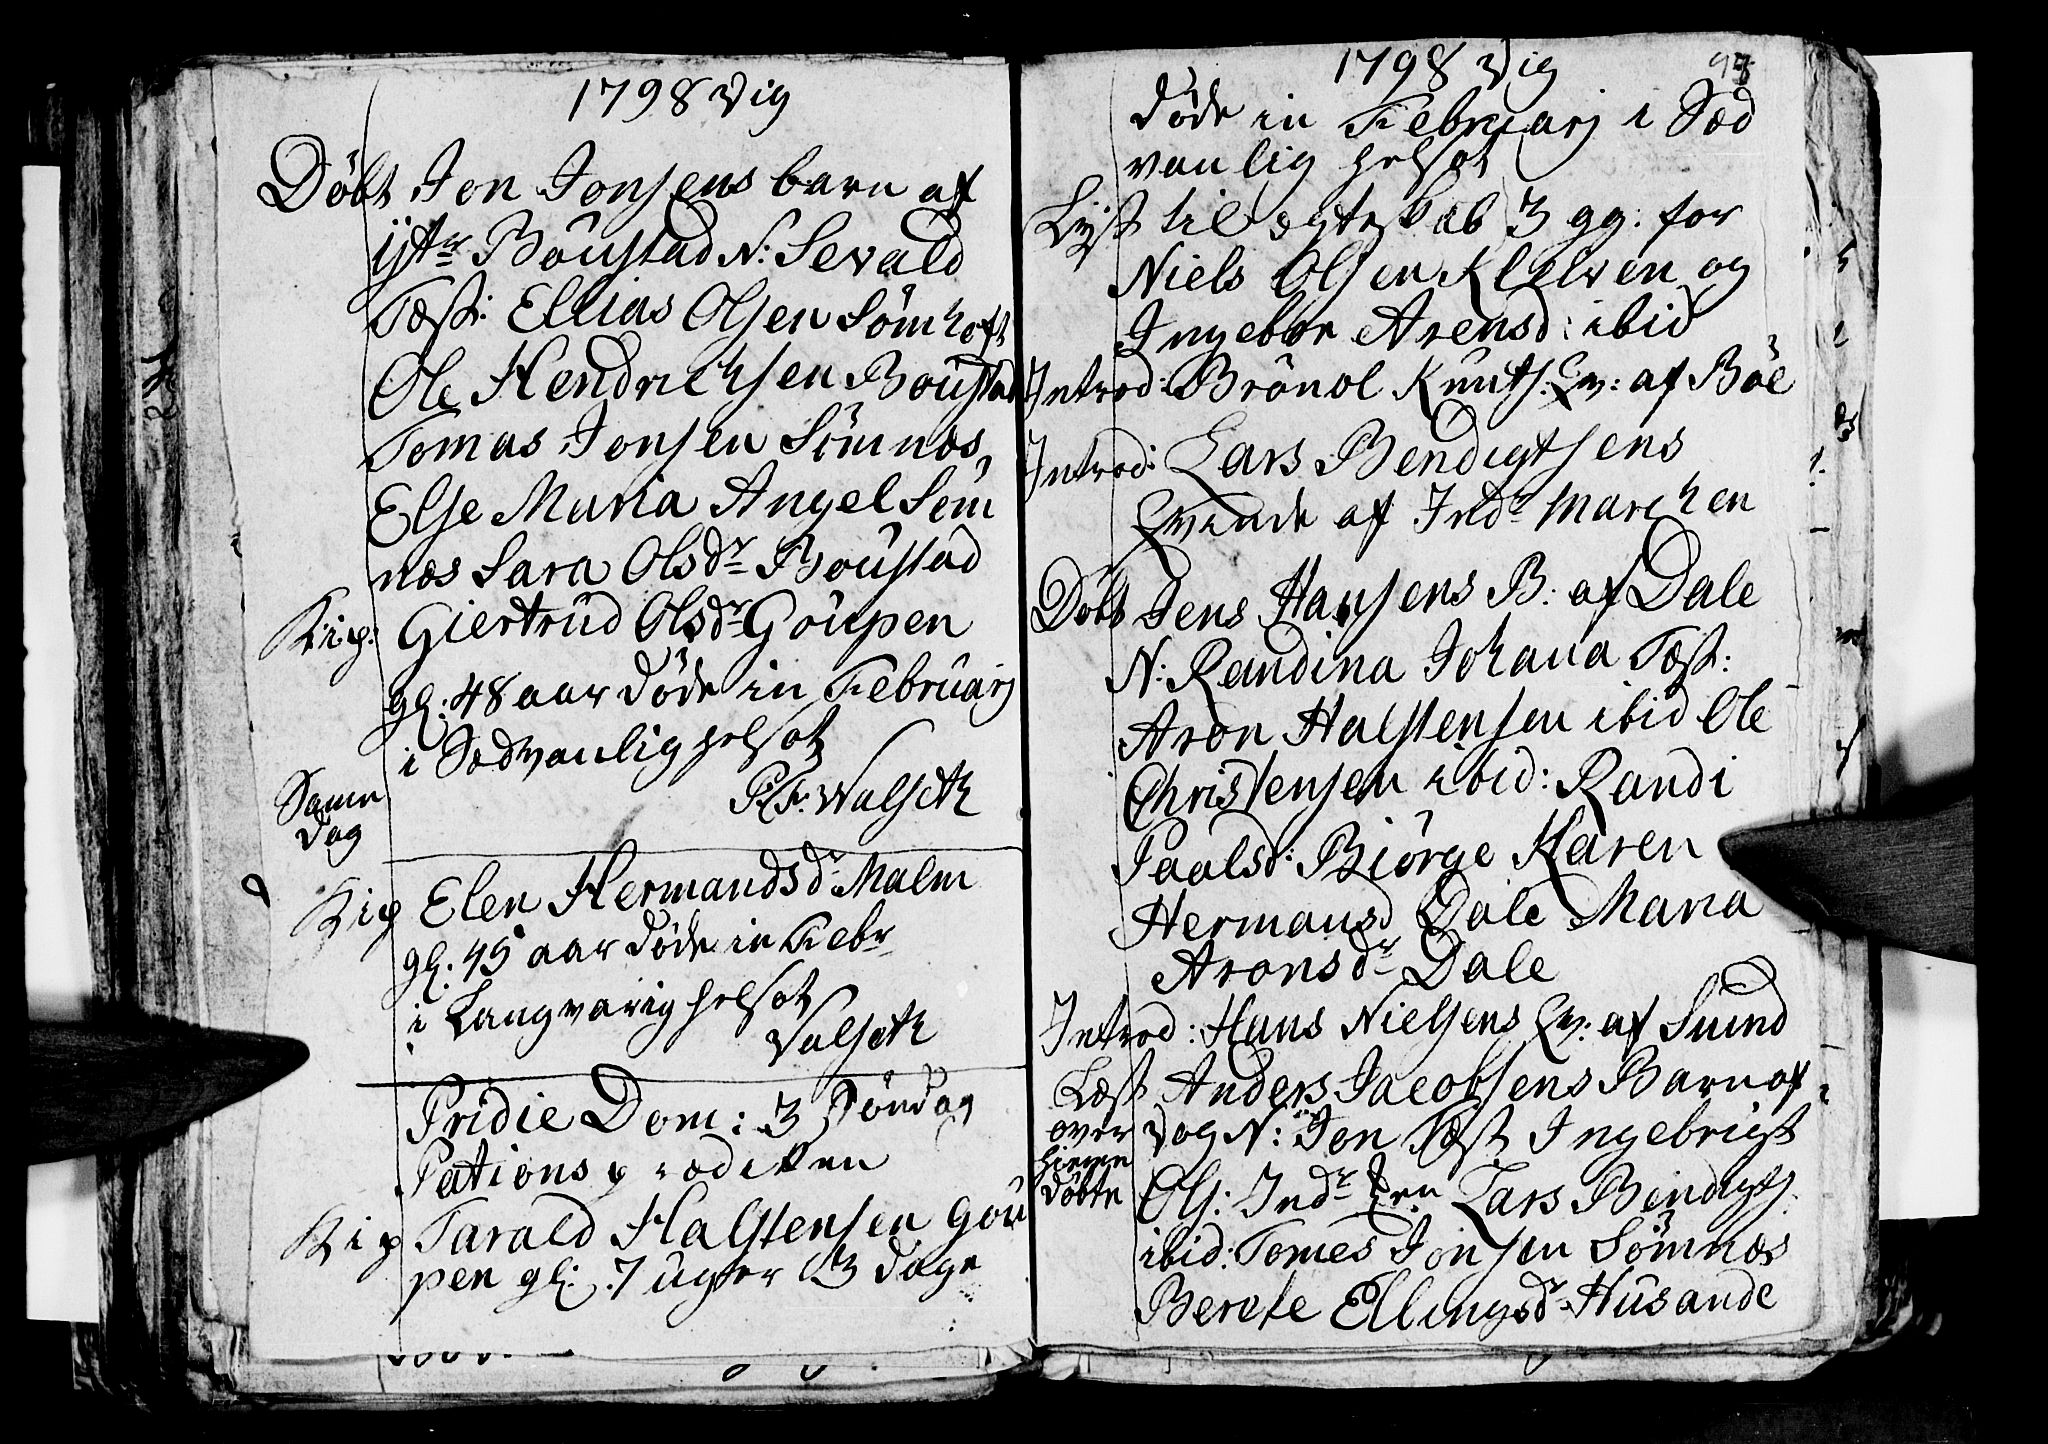 1798 Vig
Döbt Jon Jonsens barn af
ÿtr Boustad N: Sevald
Tæst: Ellias Olsen Sömhoft
Ole Hendrichsen Boustad
Tomas Jonsen Sömnæs,
Else Maria Angel Söm
næs Sara Olsdr Boustad
Kip: Giertrüd Olsdr Goupen
gl: 48 aar döde in Februarj
i Sædvanlig helsot
P. F. Walseth
Samme
Dag
Kip Elen Hermandsdr Malm
gl. 45 aar döde in Febr
i Langvarig helsot
Valseth
Pridie Dom: 3 Söndag
Pationsprædiken
Kip Tarald Halstensen Gou
pen gl: 7 uger 3 dage
1798 Vig
döde in Februarj i Sæd
vanlig helsot
Lÿst til ægteskab 3 gg: for
Niels Olsen Kelven og
Ingebor Arensd: ibid
Introd: Brönol Knuts. Qv: af Böe
Introd: Lars Bendigtsens
Qvinde af Indr Marchen
Döbt Jens Hansens B: af Dale
N: Randina Johana Tæst:
Aron Halstensen ibid Ole
Christensen ibid: Randi
Paalsd: Biörge Karen
Hermansd Dale Maria
Aronsdr Dale
Introd: Hans Nielsens Qv: af Sund
Læst Anders Jacobsens Barn af
over Vog N: Jon Tæst Ingebrigt
hieme
döbte Ols: Indr Lars Bendigts.
ibid: Tomes Jonsen Sömnæs
Berete Ellingsdr Husande